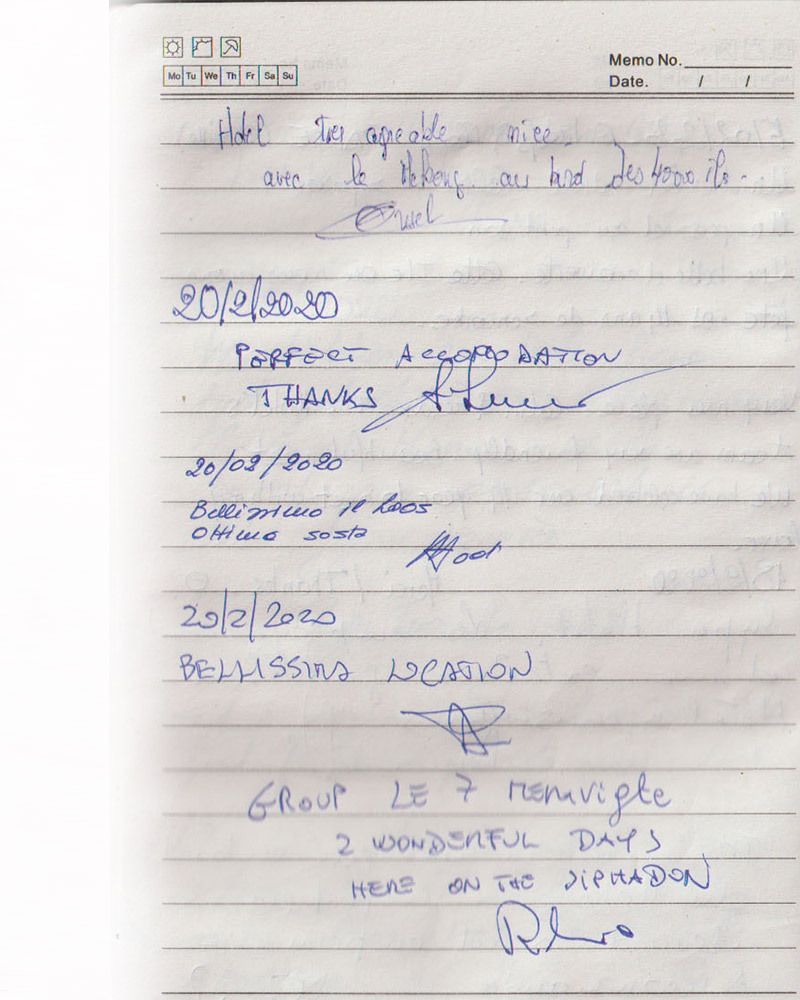 Mo Tu We Th Fr Sa Su
Memo No.
Date. / /
Hotel tres agreable nice
avec le Mekong au bord des 4000 ils.
20/2/2020
PERFECT ACCOMODATION
THANKS
20/02/2020
Bellissimo il Laos
Ottima sosta
20/2/2020
BELLISSIMA LOCATION
GROUP LE 7 MERAVIGLE
2 WONDERFUL DAYS
HERE ON THE SIPHADON